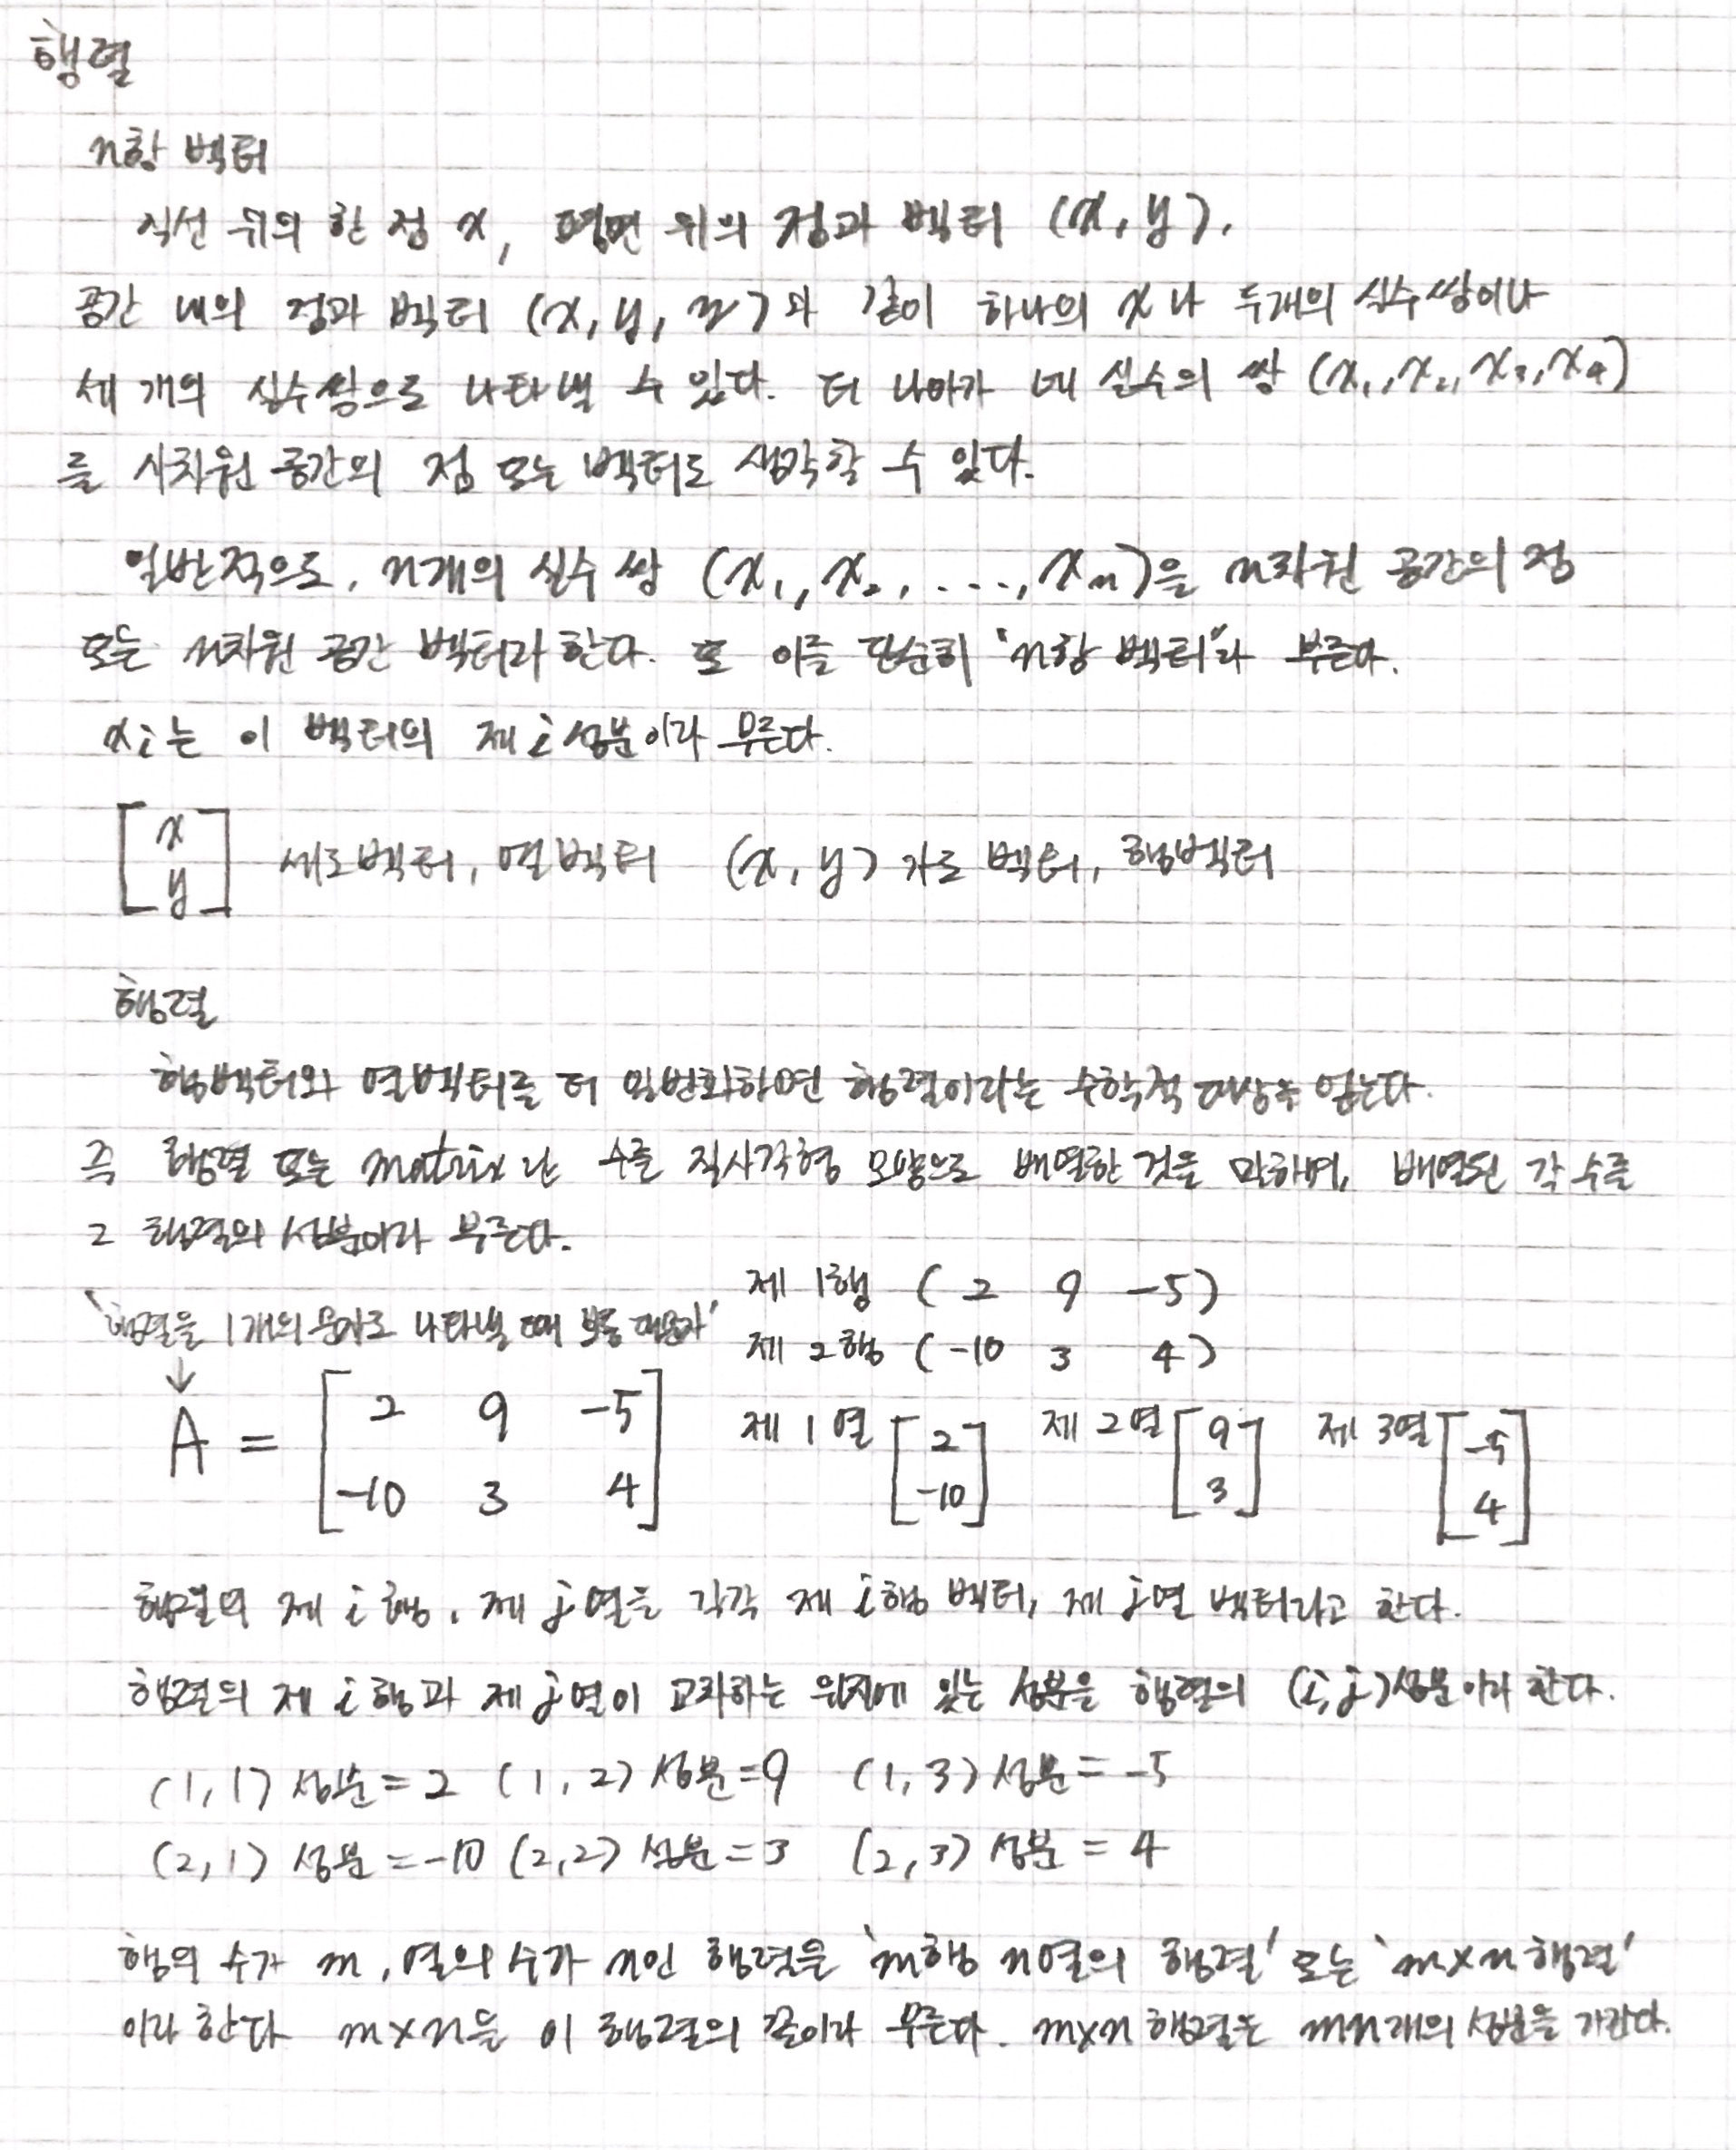 행렬
n항 벡터
직선 위의 한 점 x, 평면 위의 점과 벡터 (x, y),
공간 내의 점과 벡터 (x, y, z)와 같이 하나의 x나 두개의 실수쌍이나
세 개의 실수쌍으로 나타낼 수 있다. 더 나아가 네 실수의 쌍 (x₁, x₂, x₃, x₄)
를 사차원 공간의 점 또는 벡터로 생각할 수 있다.
일반적으로, n개의 실수 쌍 (x₁, x₂, ..., xₙ)을 n차원 공간의 점
또는 n차원 공간 벡터라 한다. 또 이를 단순히 "n항 벡터"라 부른다.
xᵢ는 이 벡터의 제 i 성분이라 부른다.
[x
y] 세로벡터, 열벡터 (x, y) 가로 벡터, 행벡터
행렬
행벡터와 열벡터를 더 일반화하면 행렬이라는 수학적 대상을 얻는다.
즉 행렬 또는 matrix란 수를 직사각형 모양으로 배열한 것을 말하며, 배열된 각 수를
그 행렬의 성분이라 부른다.
제 1행 ( 2 9 -5)
'행렬을 1개의 문자로 나타낼 때 보통 대문자'
제 2행 (-10 3 4)
↓
A = [2 9 -5
-10 3 4]
제 1열 [2
-10] 제 2열 [9
3] 제 3열 [-5
4]
행렬의 제 i 행, 제 j 열을 각각 제 i행 벡터, 제 j열 벡터라고 한다.
행렬의 제 i 행과 제 j 열이 교차하는 위치에 있는 성분을 행렬의 (i, j)성분이라 한다.
(1, 1) 성분 = 2 (1, 2) 성분 = 9 (1, 3) 성분 = -5
(2, 1) 성분 = -10 (2, 2) 성분 = 3 (2, 3) 성분 = 4
행의 수가 m, 열의 수가 n인 행렬을 'm행 n열의 행렬' 또는 'm×n 행렬'
이라 한다 m×n을 이 행렬의 꼴이라 부른다. m×n 행렬은 mn개의 성분을 가진다.